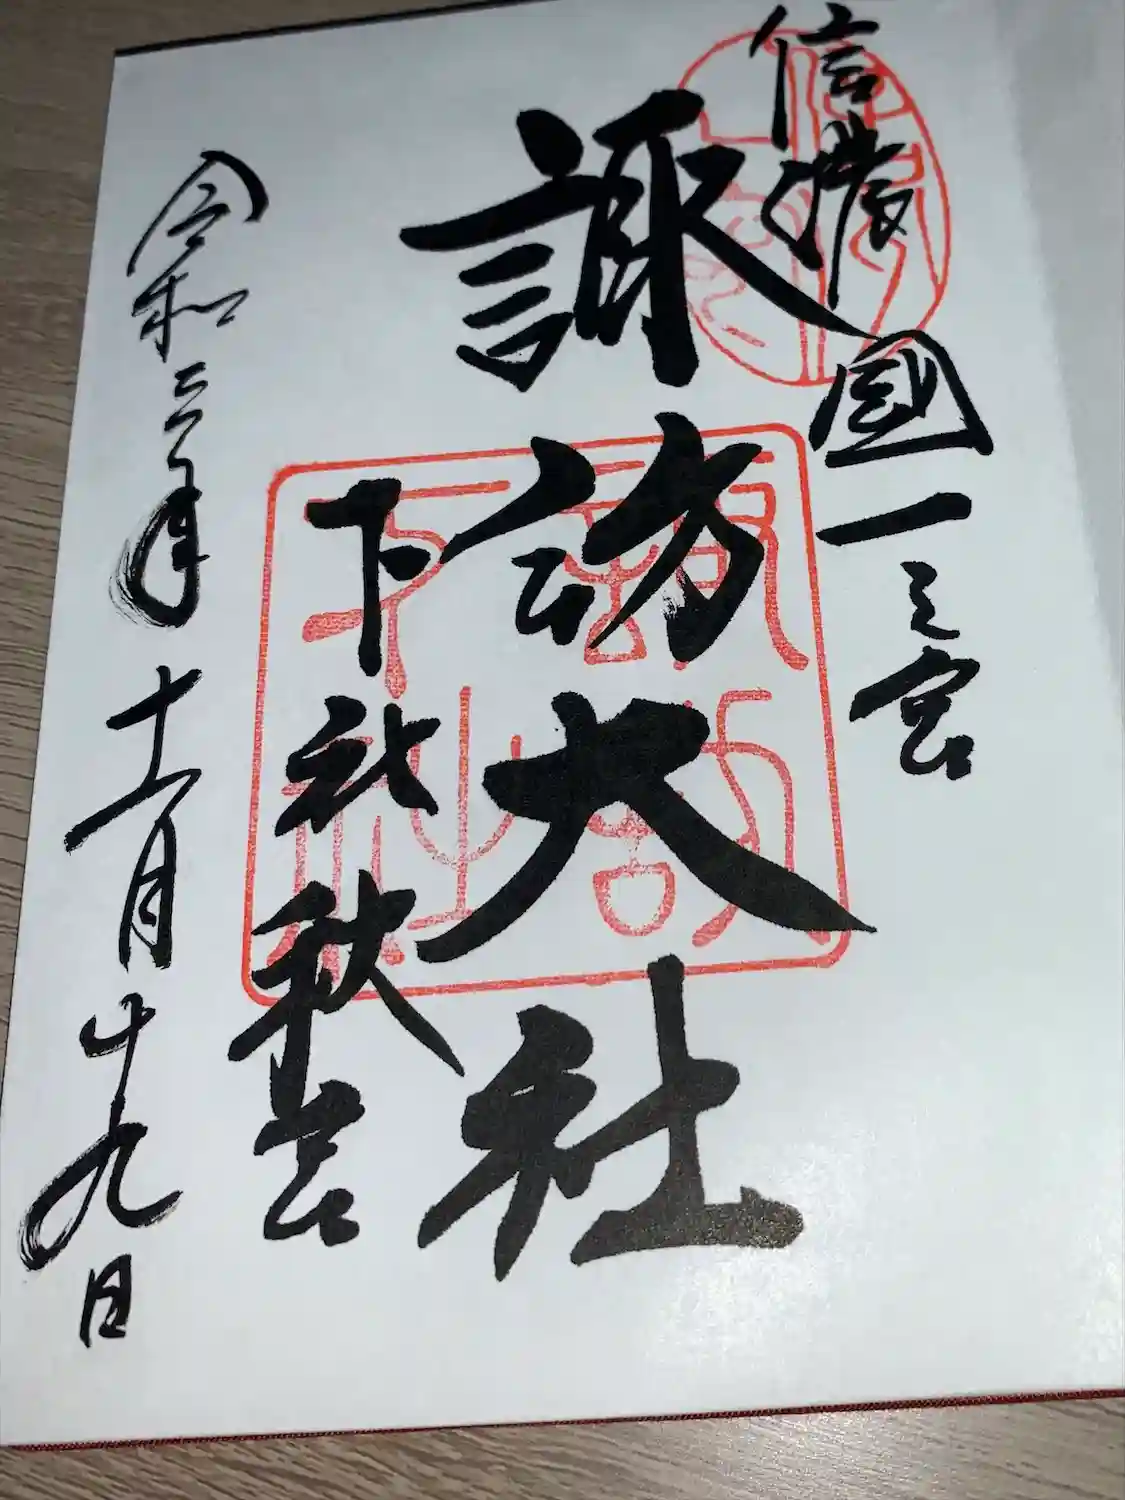 信濃國一之宮
諏訪大社
下社秋宮
令和三年
十一月十九日